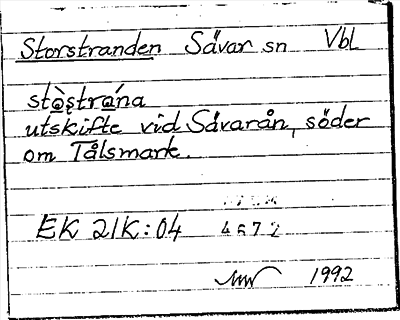 Storstranden Sävar sn Vbl
stò̱ştrá̱na
utskifte vid Sävarån, söder
om Tålsmark.
EK 21K:04 4672
1992